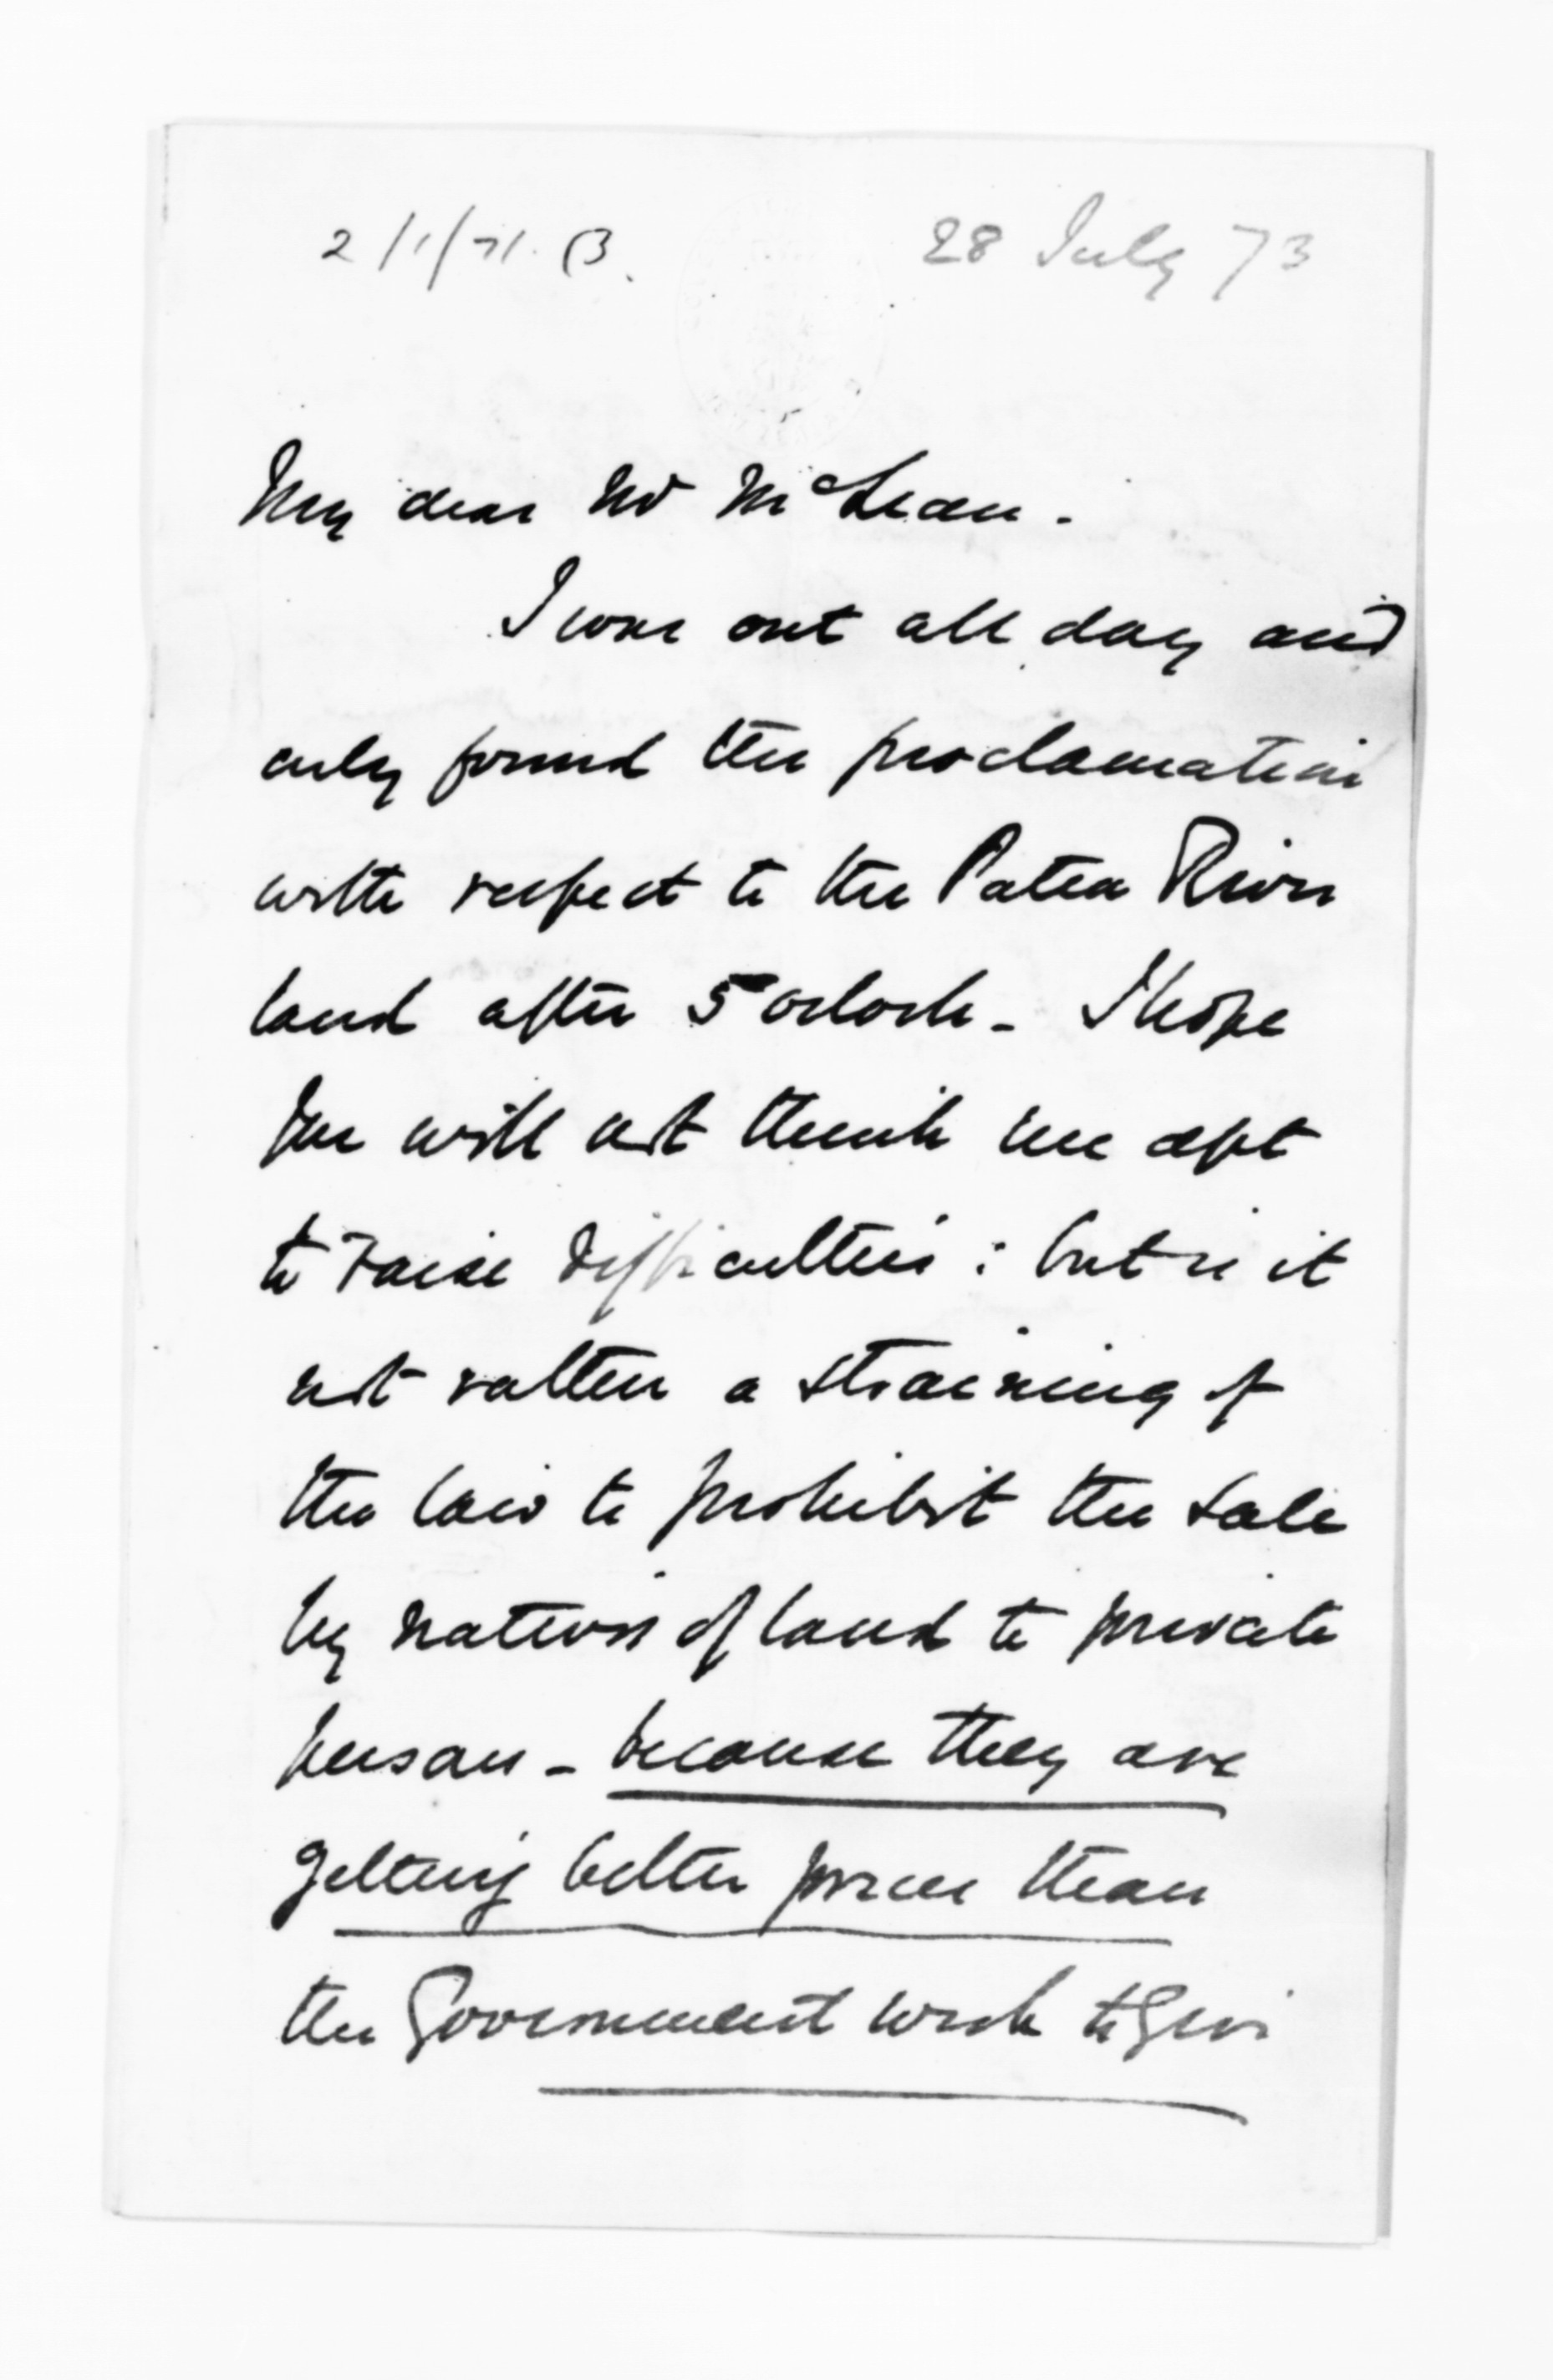 2/1/71. B.
28 July 73
My dear Mr McLean.
I was out all day and
only found the proclamation
with respect to the Patea River
land after 5 oclock - I hope
you will not think me apt
to raise difficulties : but is it
not rather a straining of
the law to prohibit the sale
by natives of land to private
persons - because they are
getting better prices than
the Government wish to give